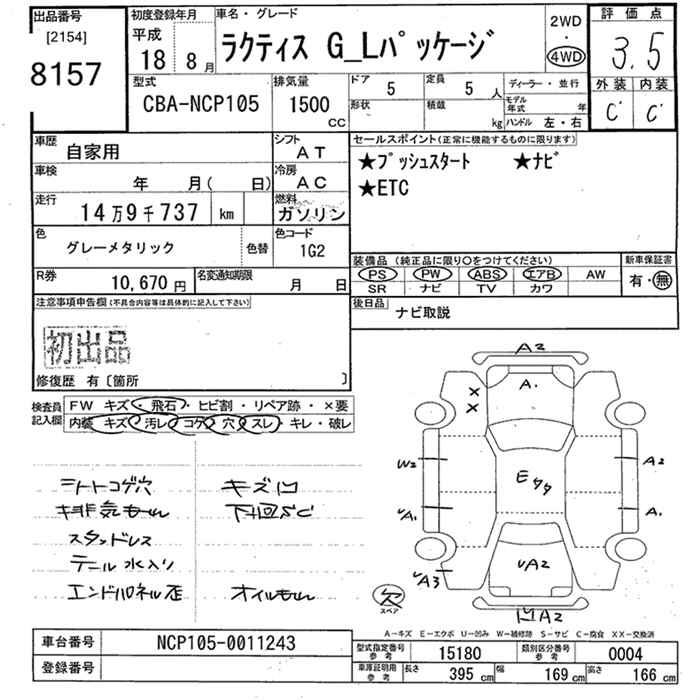 出品番号
[2154]
8157
初度登録年月
平成
18 8月
車名・グレード
ラクティス G_Lパッケージ
2WD
・
4WD
評価点
3.5
外装 内装
C C
型式
CBA-NCP105
排気量
1500
CC
ドア
5
定員
5 人
ディーラー・並行
形状
積載
kg
モデル年式 年
ハンドル 左・右
車歴
自家用
シフト
AT
車検
年 月( 日)
冷房
AC
走行
14万9千737 km
燃料
ガソリン
色
グレーメタリック
色替
色コード
1G2
R券
10,670円
名変通知期限
月 日
セールスポイント(正常に機能するものに限ります)
★プッシュスタート ★ナビ
★ETC
装備品(純正品に限り○をつけてください)
新車保証書
PS PW ABS エアB AW
SR ナビ TV カワ
有・無
後日品
ナビ取説
注意事項申告欄(不具合内容等は具体的に記入して下さい)
初出品
修復歴 有〔箇所 〕
検査員記入欄
FW キズ・飛石・ヒビ割・リペア跡・×要
内装 キズ・汚レ・コゲ・穴・スレ・キレ・破レ
シートコゲ穴 キズ凹
下回SC
スタッドレス
テール水入り
エンドパネル歪 オイルもれ
A2
A.
×
×
W2
E
A2
A1
A.
A3
A2
A2
欠
スペア
A－キズ E－エクボ U－凹み W－補修跡 S－サビ C－腐食 XX－交換済
車台番号
NCP105-0011243
登録番号
型式指定番号
参考
15180
類別区分番号
参考
0004
車庫証明用
参考
長さ
395 cm
幅
169 cm
高さ
166 cm